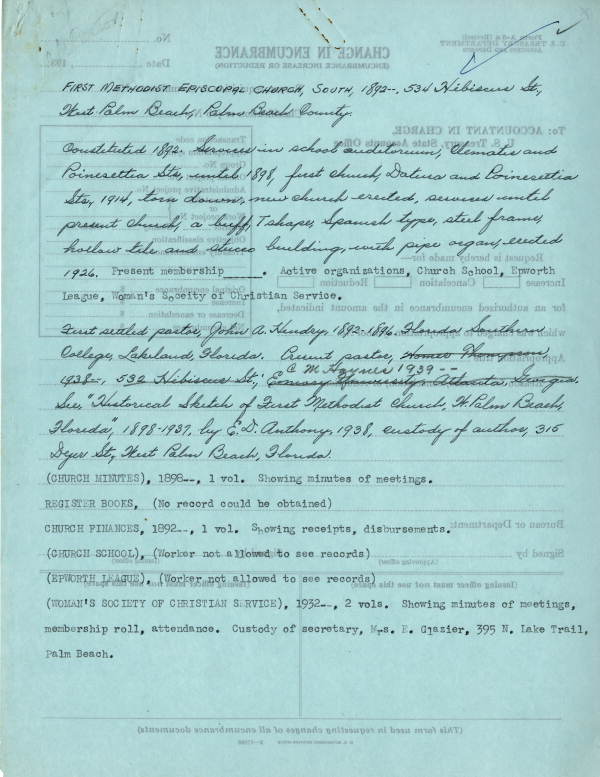 FIRST METHODIST EPISCOPAL CHURCH, SOUTH, 1892--, 534 Hibiscus St.,
West Palm Beach, Palm Beach County.
Constituted 1892. Services in school auditorium, Clematis and
Poinesettia Sts., until 1898, first church, Datura and Poinesettia
Sts., 1914, torn down, new church erected, services until
present church, a buff, T shape, Spanish type, steel frame,
hollow tile and stucco building, with pipe organ, erected
1926. Present membership_____. Active organizations, Church School, Epworth
League, Woman's Soceity of Christian Service.
First settled pastor, John A. Hendry, 1892-1896. Florida Southern
College, Lakeland, Florida. Present pastor, Homer Thompson,
C M Haynes 1939 --
1938--, 532 Hibiscus St.; Emory University, Atlanta, Georgia.
See, "Historical Sketch of First Methodist Church, W. Palm Beach,
Florida," 1898-1937, by E. D. Anthony, 1938, custody of author, 315
Dyer St., West Palm Beach, Florida.
(CHURCH MINUTES), 1898--, 1 vol. Showing minutes of meetings.
REGISTER BOOKS, (No record could be obtained)
CHURCH FINANCES, 1892--, 1 vol. Showing receipts, disbursements.
(CHURCH SCHOOL), (Worker not allowed to see records)
(EPWORTH LEAGUE), (Worker not allowed to see records)
(WOMAN'S SOCIETY OF CHRISTIAN SERVICE), 1932--, 2 vols. Showing minutes of meetings,
membership roll, attendance. Custody of secretary, Mrs. E. Glazier, 395 N. Lake Trail,
Palm Beach.